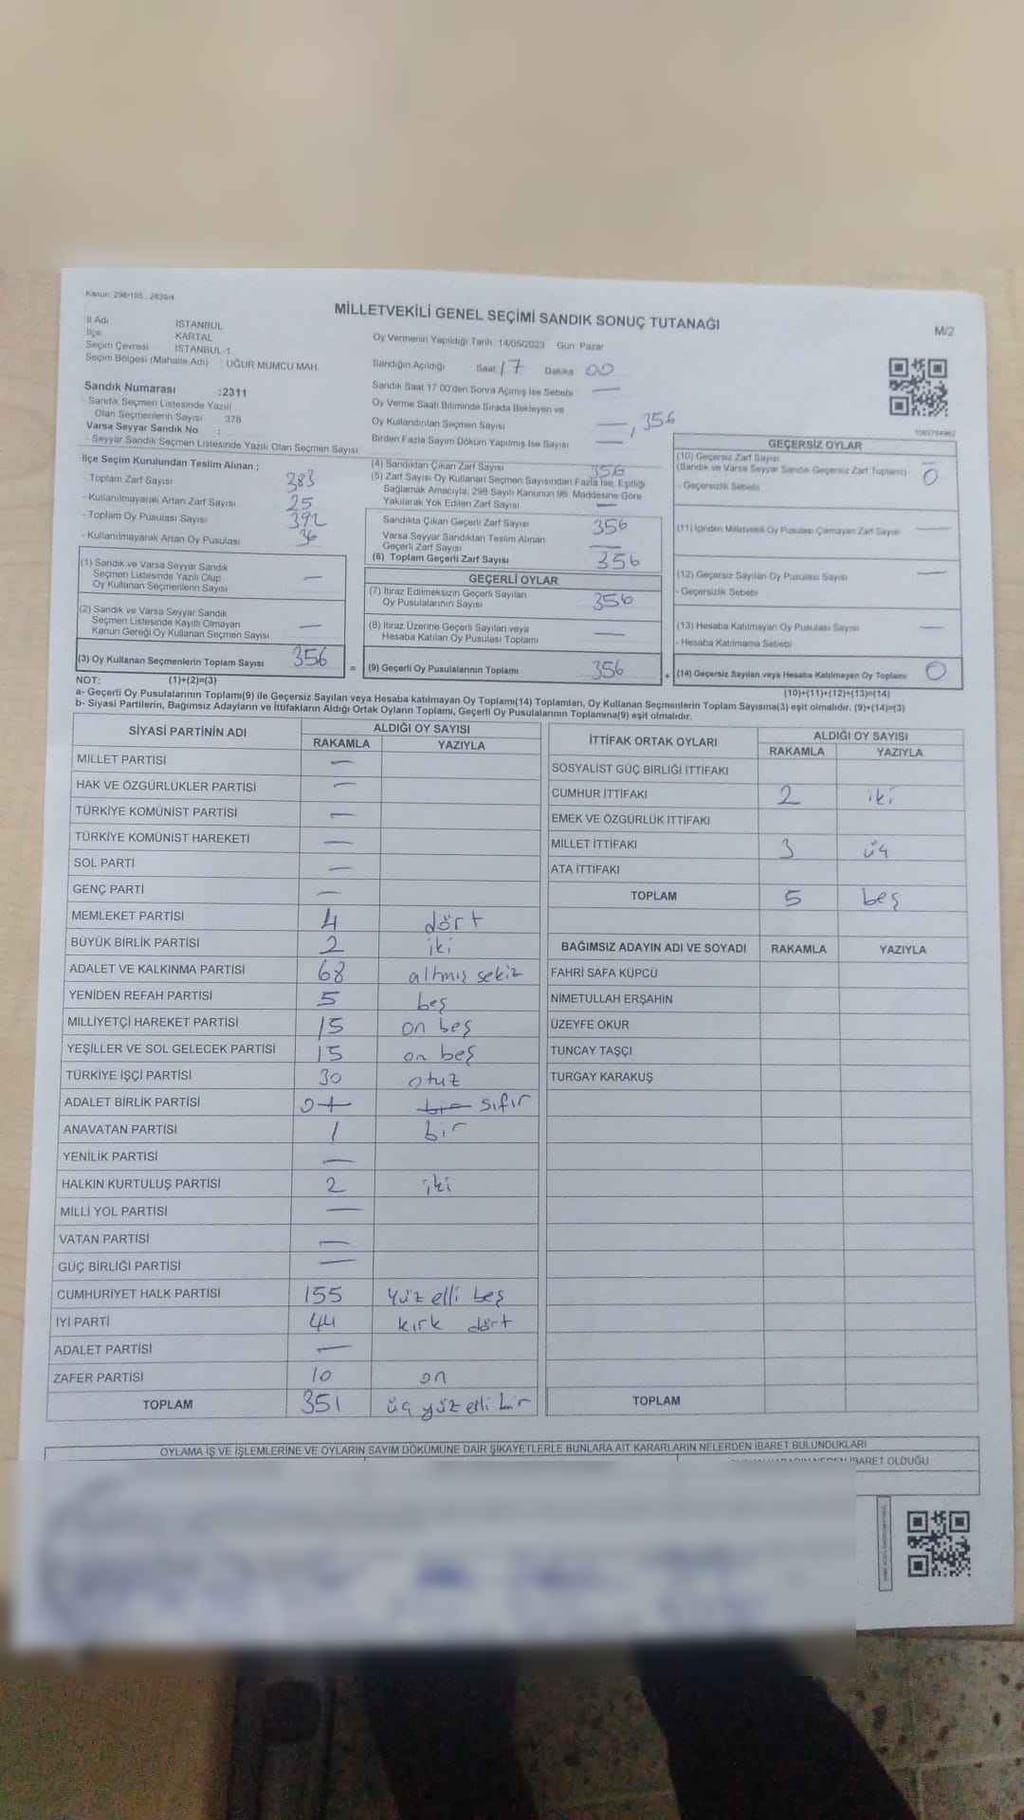 MİLLETVEKİLİ GENEL SEÇİMİ SANDIK SONUÇ TUTANAĞI
M/2
İl Adı İSTANBUL
İlçe KARTAL
Seçim Çevresi İSTANBUL-1
Seçim Bölgesi (Mahalle Adı) : UĞUR MUMCU MAH.
Sandık Numarası :2311
Sandık Seçmen Listesinde Yazılı
Olan Seçmenlerin Sayısı 378
Varsa Seyyar Sandık No :
- Seyyar Sandık Seçmen Listesinde Yazılı Olan Seçmen Sayısı
Oy Vermenin Yapıldığı Tarih: 14/05/2023 Gün: Pazar
Sandığın Açıldığı Saat 17 Dakika 00
Sandık Saat 17:00'den Sonra Açılmış İse Sebebi —
Oy Verme Saati Bitiminde Sırada Bekleyen ve
Oy Kullandırılan Seçmen Sayısı —, 356
Birden Fazla Sayım Döküm Yapılmış İse Sayısı —
İlçe Seçim Kurulundan Teslim Alınan ;
- Toplam Zarf Sayısı 383
- Kullanılmayarak Artan Zarf Sayısı 25
- Toplam Oy Pusulası Sayısı 392
- Kullanılmayarak Artan Oy Pusulası 36
(1) Sandık ve Varsa Seyyar Sandık
Seçmen Listesinde Yazılı Olup
Oy Kullanan Seçmenlerin Sayısı —
(2) Sandık ve Varsa Seyyar Sandık
Seçmen Listesinde Kayıtlı Olmayan
Kanun Gereği Oy Kullanan Seçmen Sayısı —
(3) Oy Kullanan Seçmenlerin Toplam Sayısı 356
(4) Sandıktan Çıkan Zarf Sayısı 356
(5) Zarf Sayısı Oy Kullanan Seçmen Sayısından Fazla İse, Eşitliği
Sağlamak Amacıyla, 298 Sayılı Kanunun 98. Maddesine Göre
Yakılarak Yok Edilen Zarf Sayısı —
Sandıkta Çıkan Geçerli Zarf Sayısı 356
Varsa Seyyar Sandıktan Teslim Alınan
Geçerli Zarf Sayısı —
(6) Toplam Geçerli Zarf Sayısı 356
GEÇERLİ OYLAR
(7) İtiraz Edilmeksizin Geçerli Sayılan
Oy Pusulalarının Sayısı 356
(8) İtiraz Üzerine Geçerli Sayılan veya
Hesaba Katılan Oy Pusulası Toplamı —
= (9) Geçerli Oy Pusulalarının Toplamı 356
GEÇERSİZ OYLAR
(10) Geçersiz Zarf Sayısı
(Sandık ve Varsa Seyyar Sandık Geçersiz Zarf Toplamı) 0
- Geçersizlik Sebebi
(11) İçinden Milletvekili Oy Pusulası Çıkmayan Zarf Sayısı —
(12) Geçersiz Sayılan Oy Pusulası Sayısı —
- Geçersizlik Sebebi
(13) Hesaba Katılmayan Oy Pusulası Sayısı —
- Hesaba Katılmama Sebebi
+ (14) Geçersiz Sayılan veya Hesaba Katılmayan Oy Toplamı 0
NOT: (1)+(2)=(3) (10)+(11)+(12)+(13)=(14)
a- Geçerli Oy Pusulalarının Toplamı(9) ile Geçersiz Sayılan veya Hesaba katılmayan Oy Toplamı(14) Toplamları, Oy Kullanan Seçmenlerin Toplam Sayısına(3) eşit olmalıdır. (9)+(14)=(3)
b- Siyasi Partilerin, Bağımsız Adayların ve İttifakların Aldığı Ortak Oyların Toplamı, Geçerli Oy Pusulalarının Toplamına(9) eşit olmalıdır.
SİYASİ PARTİNİN ADI ALDIĞI OY SAYISI
RAKAMLA YAZIYLA
MİLLET PARTİSİ —
HAK VE ÖZGÜRLÜKLER PARTİSİ —
TÜRKİYE KOMÜNİST PARTİSİ —
TÜRKİYE KOMÜNİST HAREKETİ —
SOL PARTİ —
GENÇ PARTİ —
MEMLEKET PARTİSİ 4 dört
BÜYÜK BİRLİK PARTİSİ 2 iki
ADALET VE KALKINMA PARTİSİ 68 altmış sekiz
YENİDEN REFAH PARTİSİ 5 beş
MİLLİYETÇİ HAREKET PARTİSİ 15 on beş
YEŞİLLER VE SOL GELECEK PARTİSİ 15 on beş
TÜRKİYE İŞÇİ PARTİSİ 30 otuz
ADALET BİRLİK PARTİSİ 0 bir sıfır
ANAVATAN PARTİSİ 1 bir
YENİLİK PARTİSİ —
HALKIN KURTULUŞ PARTİSİ 2 iki
MİLLİ YOL PARTİSİ —
VATAN PARTİSİ —
GÜÇ BİRLİĞİ PARTİSİ —
CUMHURİYET HALK PARTİSİ 155 yüz elli beş
İYİ PARTİ 44 kırk dört
ADALET PARTİSİ —
ZAFER PARTİSİ 10 on
TOPLAM 351 üç yüz elli bir
İTTİFAK ORTAK OYLARI ALDIĞI OY SAYISI
RAKAMLA YAZIYLA
SOSYALİST GÜÇ BİRLİĞİ İTTİFAKI
CUMHUR İTTİFAKI 2 iki
EMEK VE ÖZGÜRLÜK İTTİFAKI
MİLLET İTTİFAKI 3 üç
ATA İTTİFAKI
TOPLAM 5 beş
BAĞIMSIZ ADAYIN ADI VE SOYADI RAKAMLA YAZIYLA
FAHRİ SAFA KÜPCÜ
NİMETULLAH ERŞAHİN
ÜZEYFE OKUR
TUNCAY TAŞÇI
TURGAY KARAKUŞ
TOPLAM
OYLAMA İŞ VE İŞLEMLERİNE VE OYLARIN SAYIM DÖKÜMÜNE DAİR ŞİKAYETLERLE BUNLARA AİT KARARLARIN NELERDEN İBARET BULUNDUKLARI
İBARET OLDUĞU